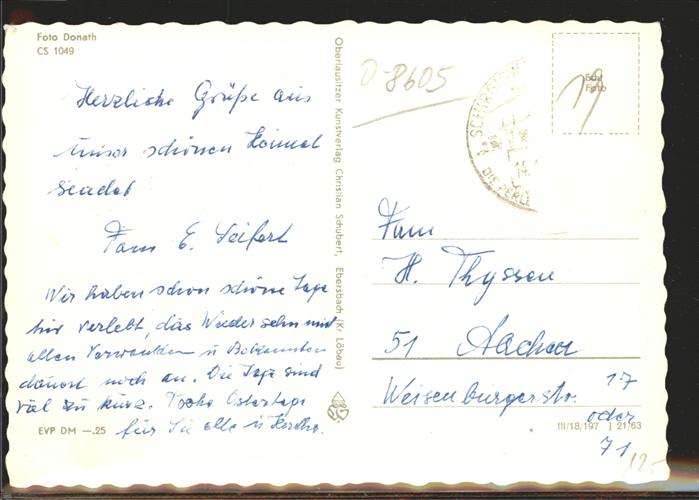 Foto Donath
CS 1049
Herzliche Grüße aus
unser schönen Heimat
sendet
Fam E. Seifert
Wir haben schon schöne Tage
hir verlebt, das Wieder sehn mit
allen Verwanten u Bekannten
dauert noch an. Die Tage sind
viel zu kurz. Frohe Ostertage
für Sie alle u
EVP DM —.25
Oberlausitzer Kunstverlag Christian Schubert, Ebersbach (Kr. Löbau)
D-8605
19
Echt
Foto
DIE PERLE
Fam
H. Thyssen
51 Aachen
Weisenburgerstr. 17
oder
71
III/18/197 J 21/63
12.-